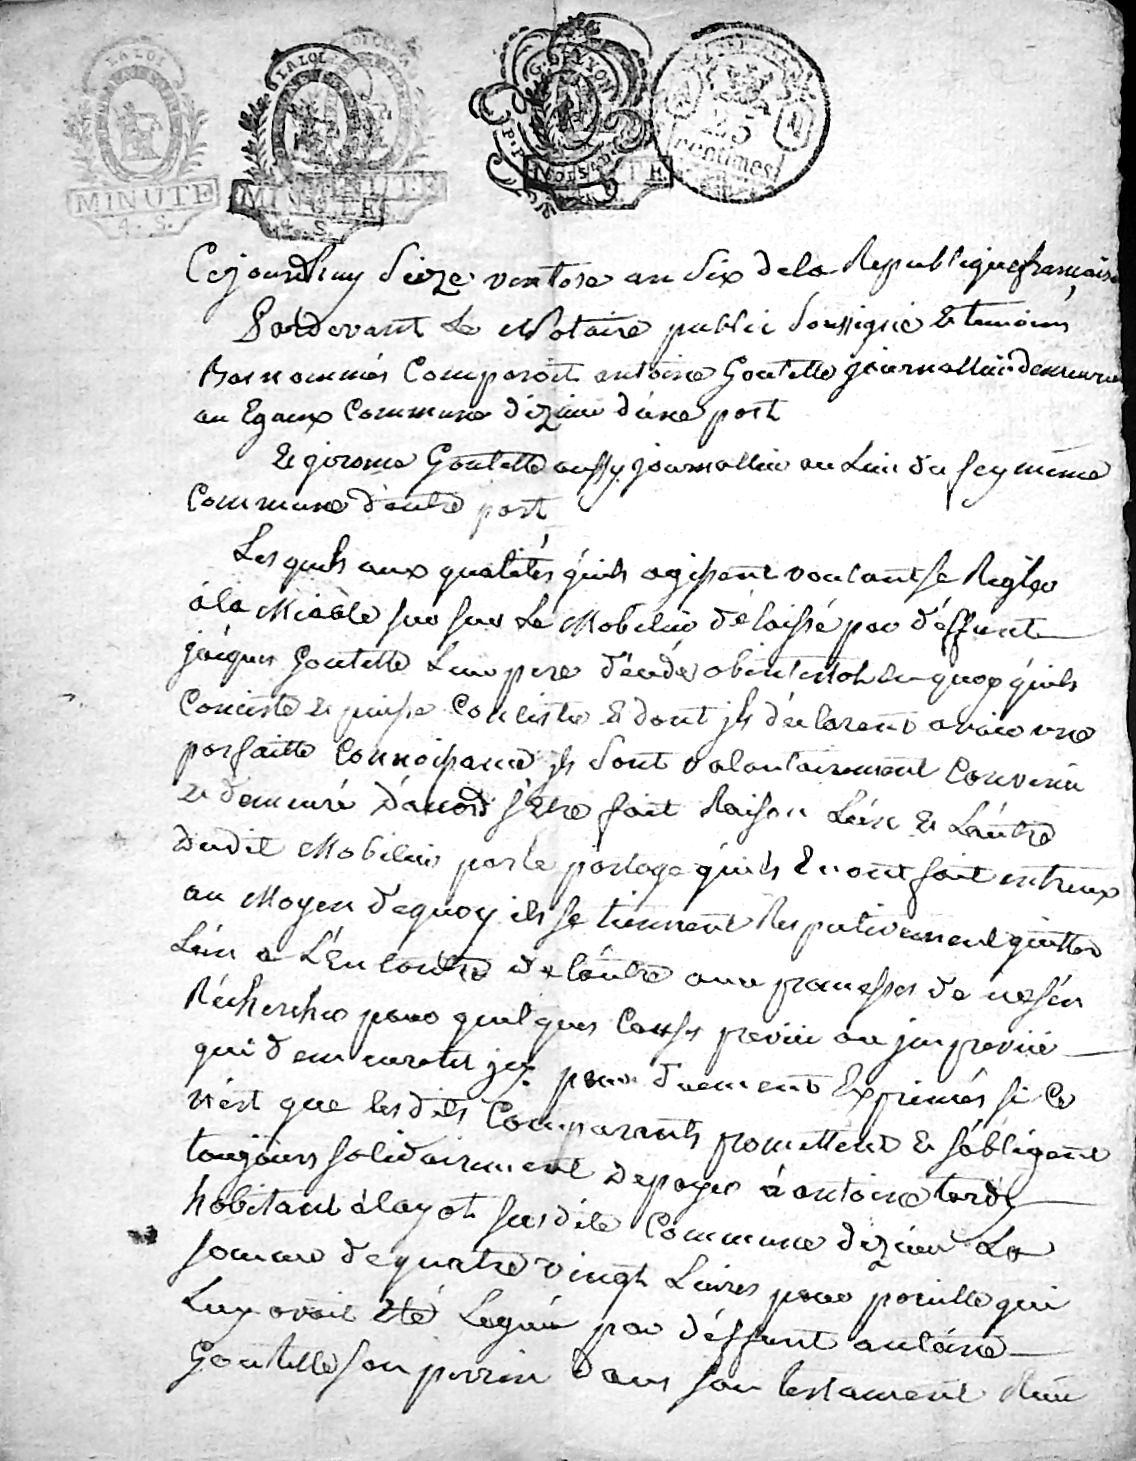 LA LOI
MINUTE
4. S.
LA LOI
MINUTE
4. S.
G. DE LYON
25
centimes
Cejourdhuy Seize ventose an Six dela Republique francaise
Pardevant Le Notaire public Soussigné & temoins
Bas nommés Comparoit antoine Goutelle journallier demeurant
au Egaux Commune d'izieu d'une part
Et girome Goutelle aussy journallier au Lieu du fey même
Commune d'autre part
Lesquels aux qualités quils agissent voulant se Regler
à la Miable sur sur Le Mobilier délaissé par déffunt
jâques Goutelle Leur pere décédé obintestat en quoy quils
Conciste & puisse Conciste & dont ils déclarent avoir une
parfaitte Connoissance ils Sont volontairement Convenu
et demeuré Dâcord s'être fait Raison Lún & Láutre
Dudit Mobilier par le partage quils En ont fait entreux
au Moyen dequoy ils se tiennent Respectivement quittes
Lún a L'Encontre de láutre avec promesses de ne sén
Récherches pour quelques Causes prevûe ou jmprevûe
qui demeurates jcy pour duement Exprimés si Ce
n'ést que lesdits Comparants promettent & sóbligent
toujours solidairement De payer à antoine tardy
habitant à layot susdite Commune dizieu La
somme de quatre vingt Livres pour pareille qui
Luy avoit Eté Leguée par déffunt antoine
Goutelle son parrin Dans son testament Reçu